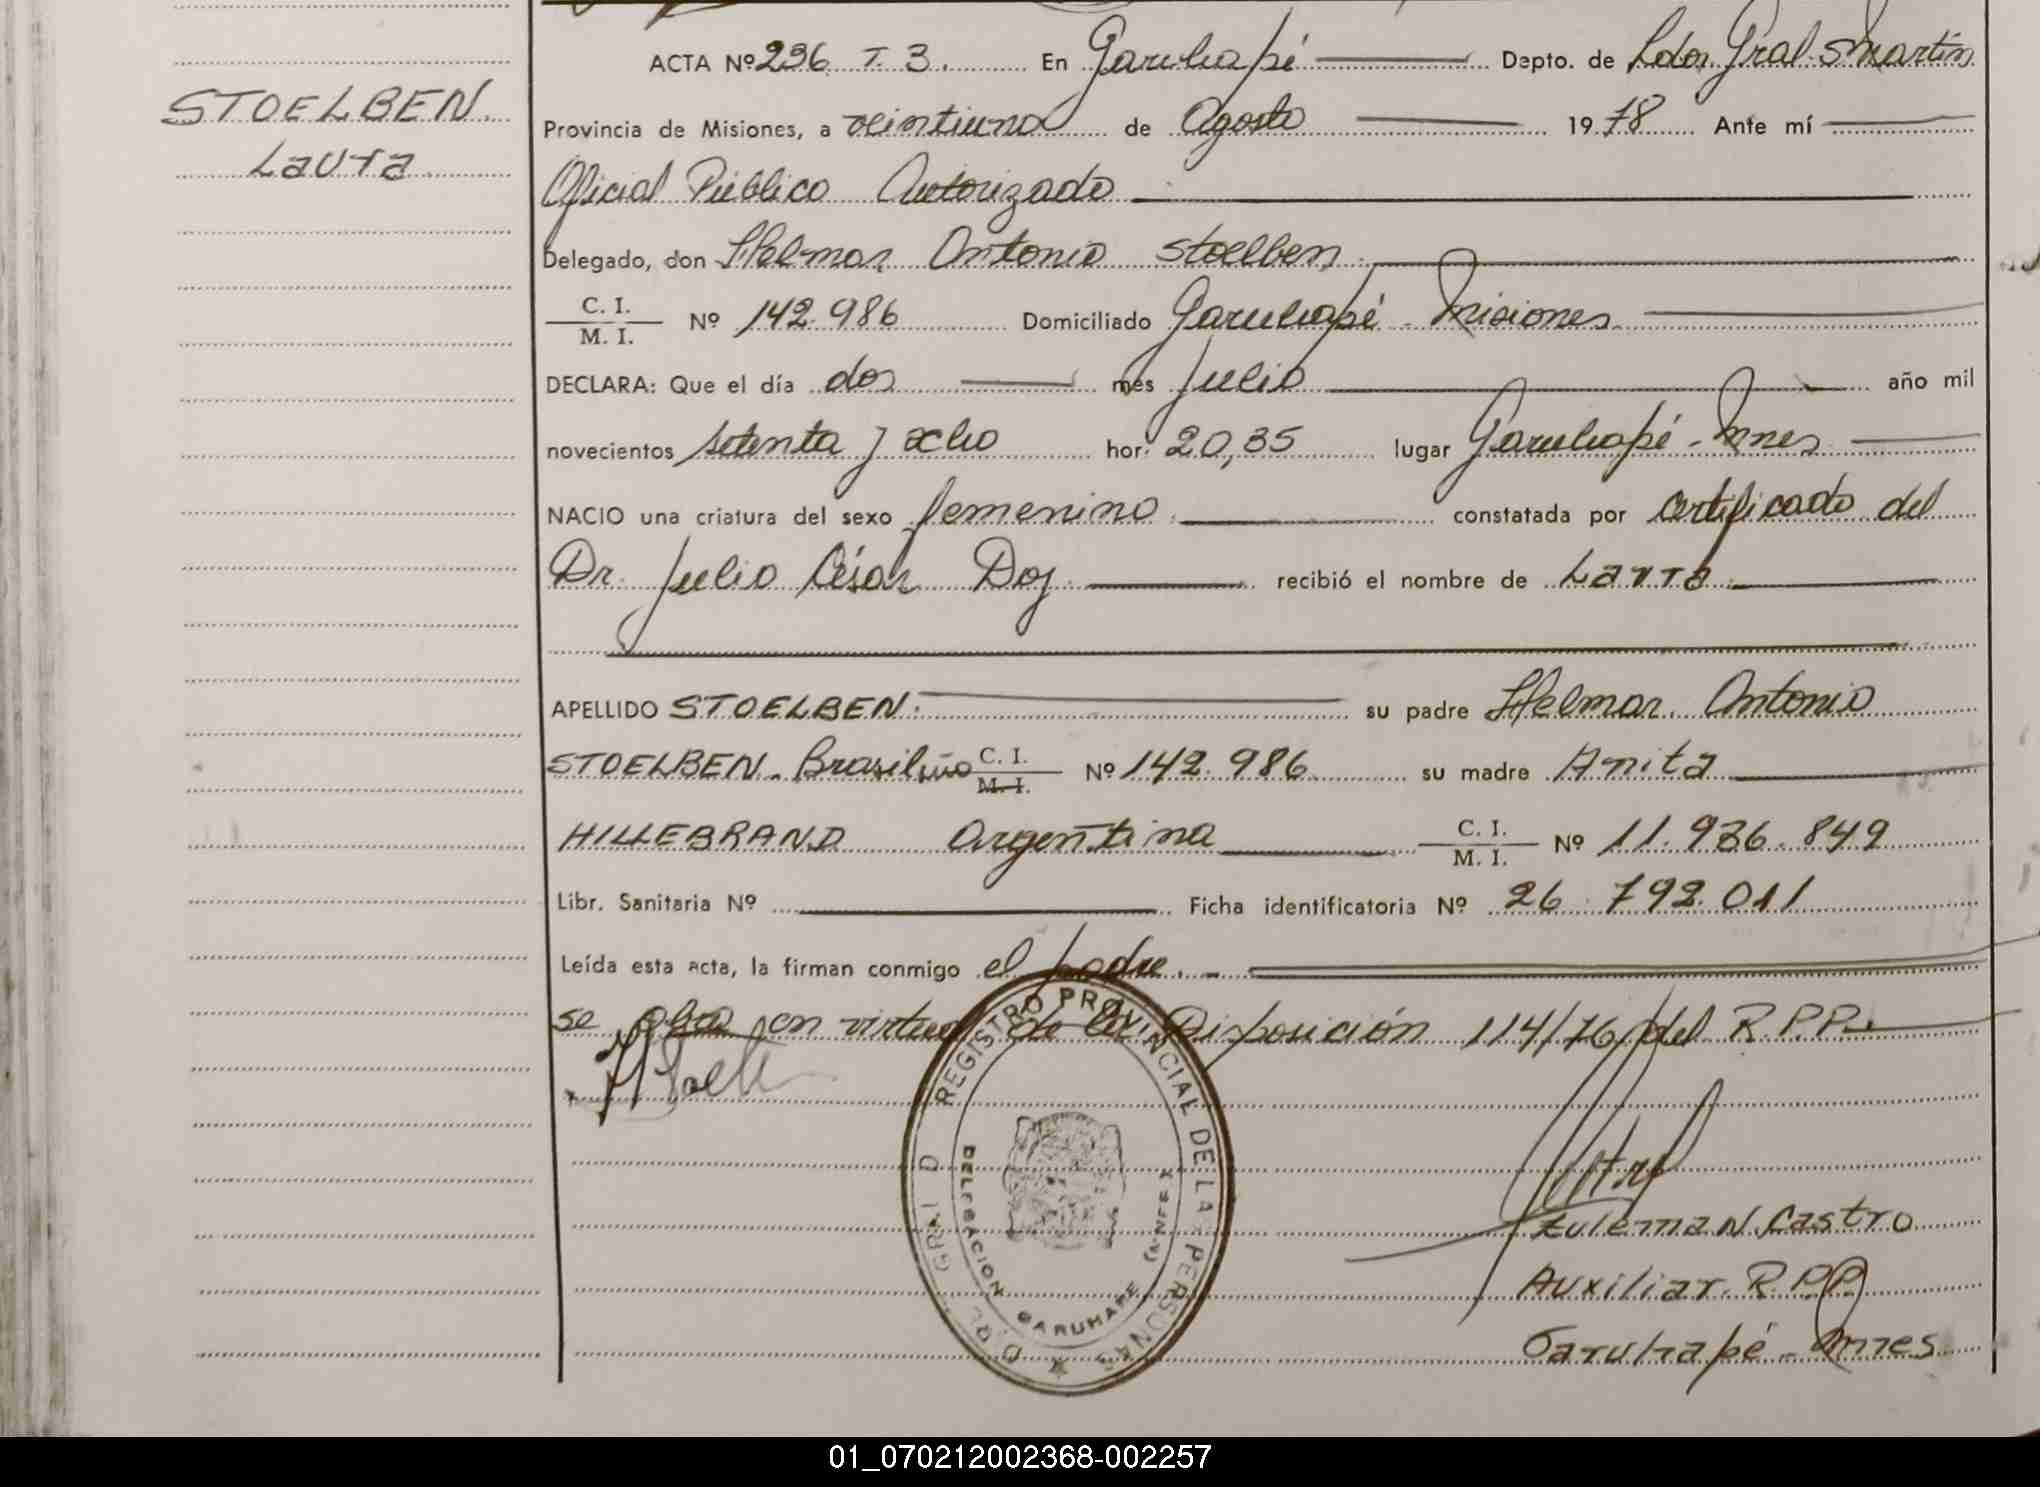 STOELBEN.
Laura
ACTA Nº 236 T. 3. En Garuhapé Depto. de Ldor. Gral. S Martín
Provincia de Misiones, a veintiuno de Agosto 1978 Ante mí
Oficial Público Autorizado
Delegado, don Helmar Antonio Stoelben.
C. I.
M. I. Nº 142.986 Domiciliado Garuhapé - Misiones.
DECLARA: Que el día dos mes Julio año mil
novecientos setenta y ocho hor. 20,35 lugar Garuhapé - Mnes
NACIO una criatura del sexo femenino. constatada por certificado del
Dr. Julio César Doz. recibió el nombre de Laura
APELLIDO STOELBEN. su padre Helmar Antonio
STOELBEN. Brasileño C. I.
M. I. Nº 142.986 su madre Anita
HILLEBRAND Argentina C. I.
M. I. Nº 11.936.849
Libr. Sanitaria Nº Ficha identificatoria Nº 26.792.011
Leída esta acta, la firman conmigo el padre. -
se en virtud de la Disposición 114/76 del R.P.P.
REGISTRO PROVINCIAL DE LAS PERSONAS
DELEGACION GARUHAPE
Zulema N. Castro
Auxiliar. R.P.P.
Garuhapé - Mnes
01_070212002368-002257